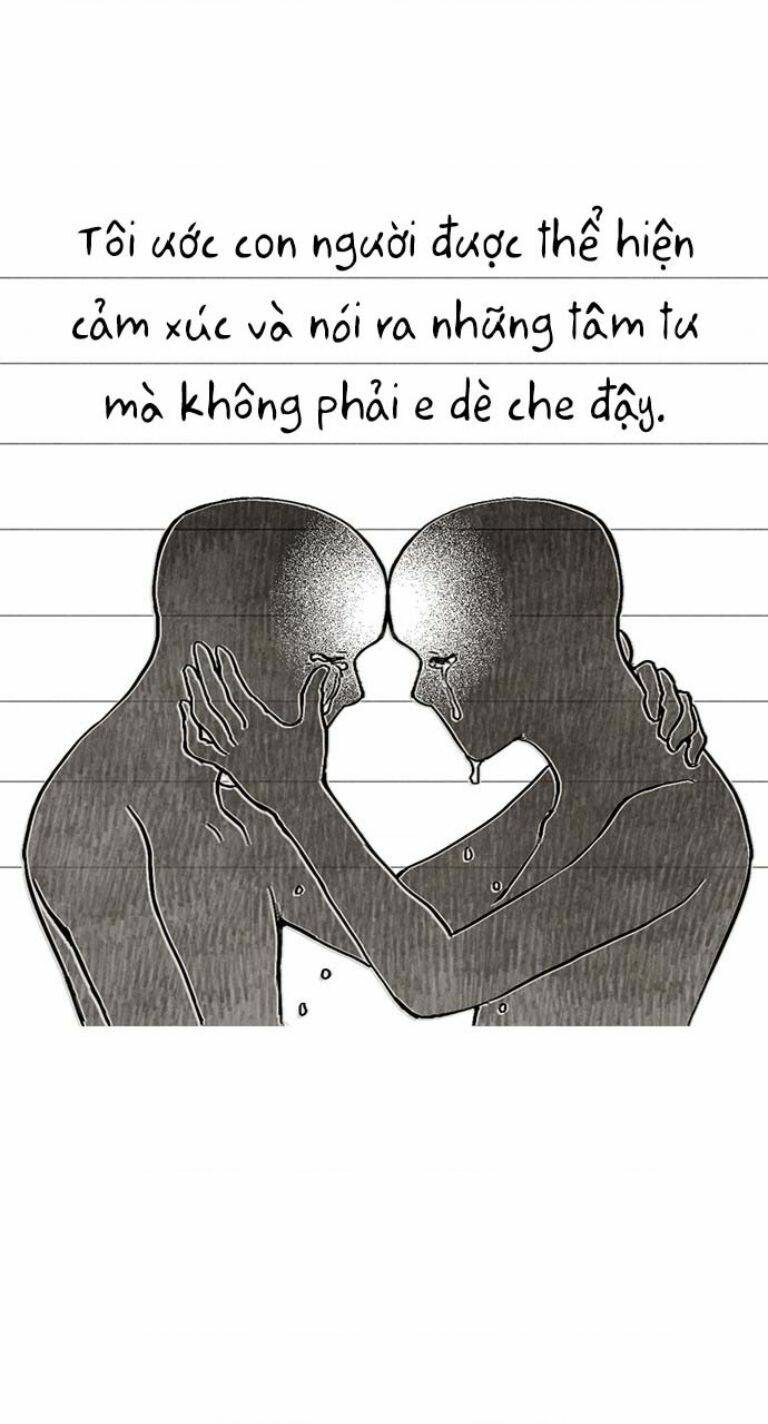 Tôi ước con người được thể hiện
cảm xúc và nói ra những tâm tư
mà không phải e dè che đậy.